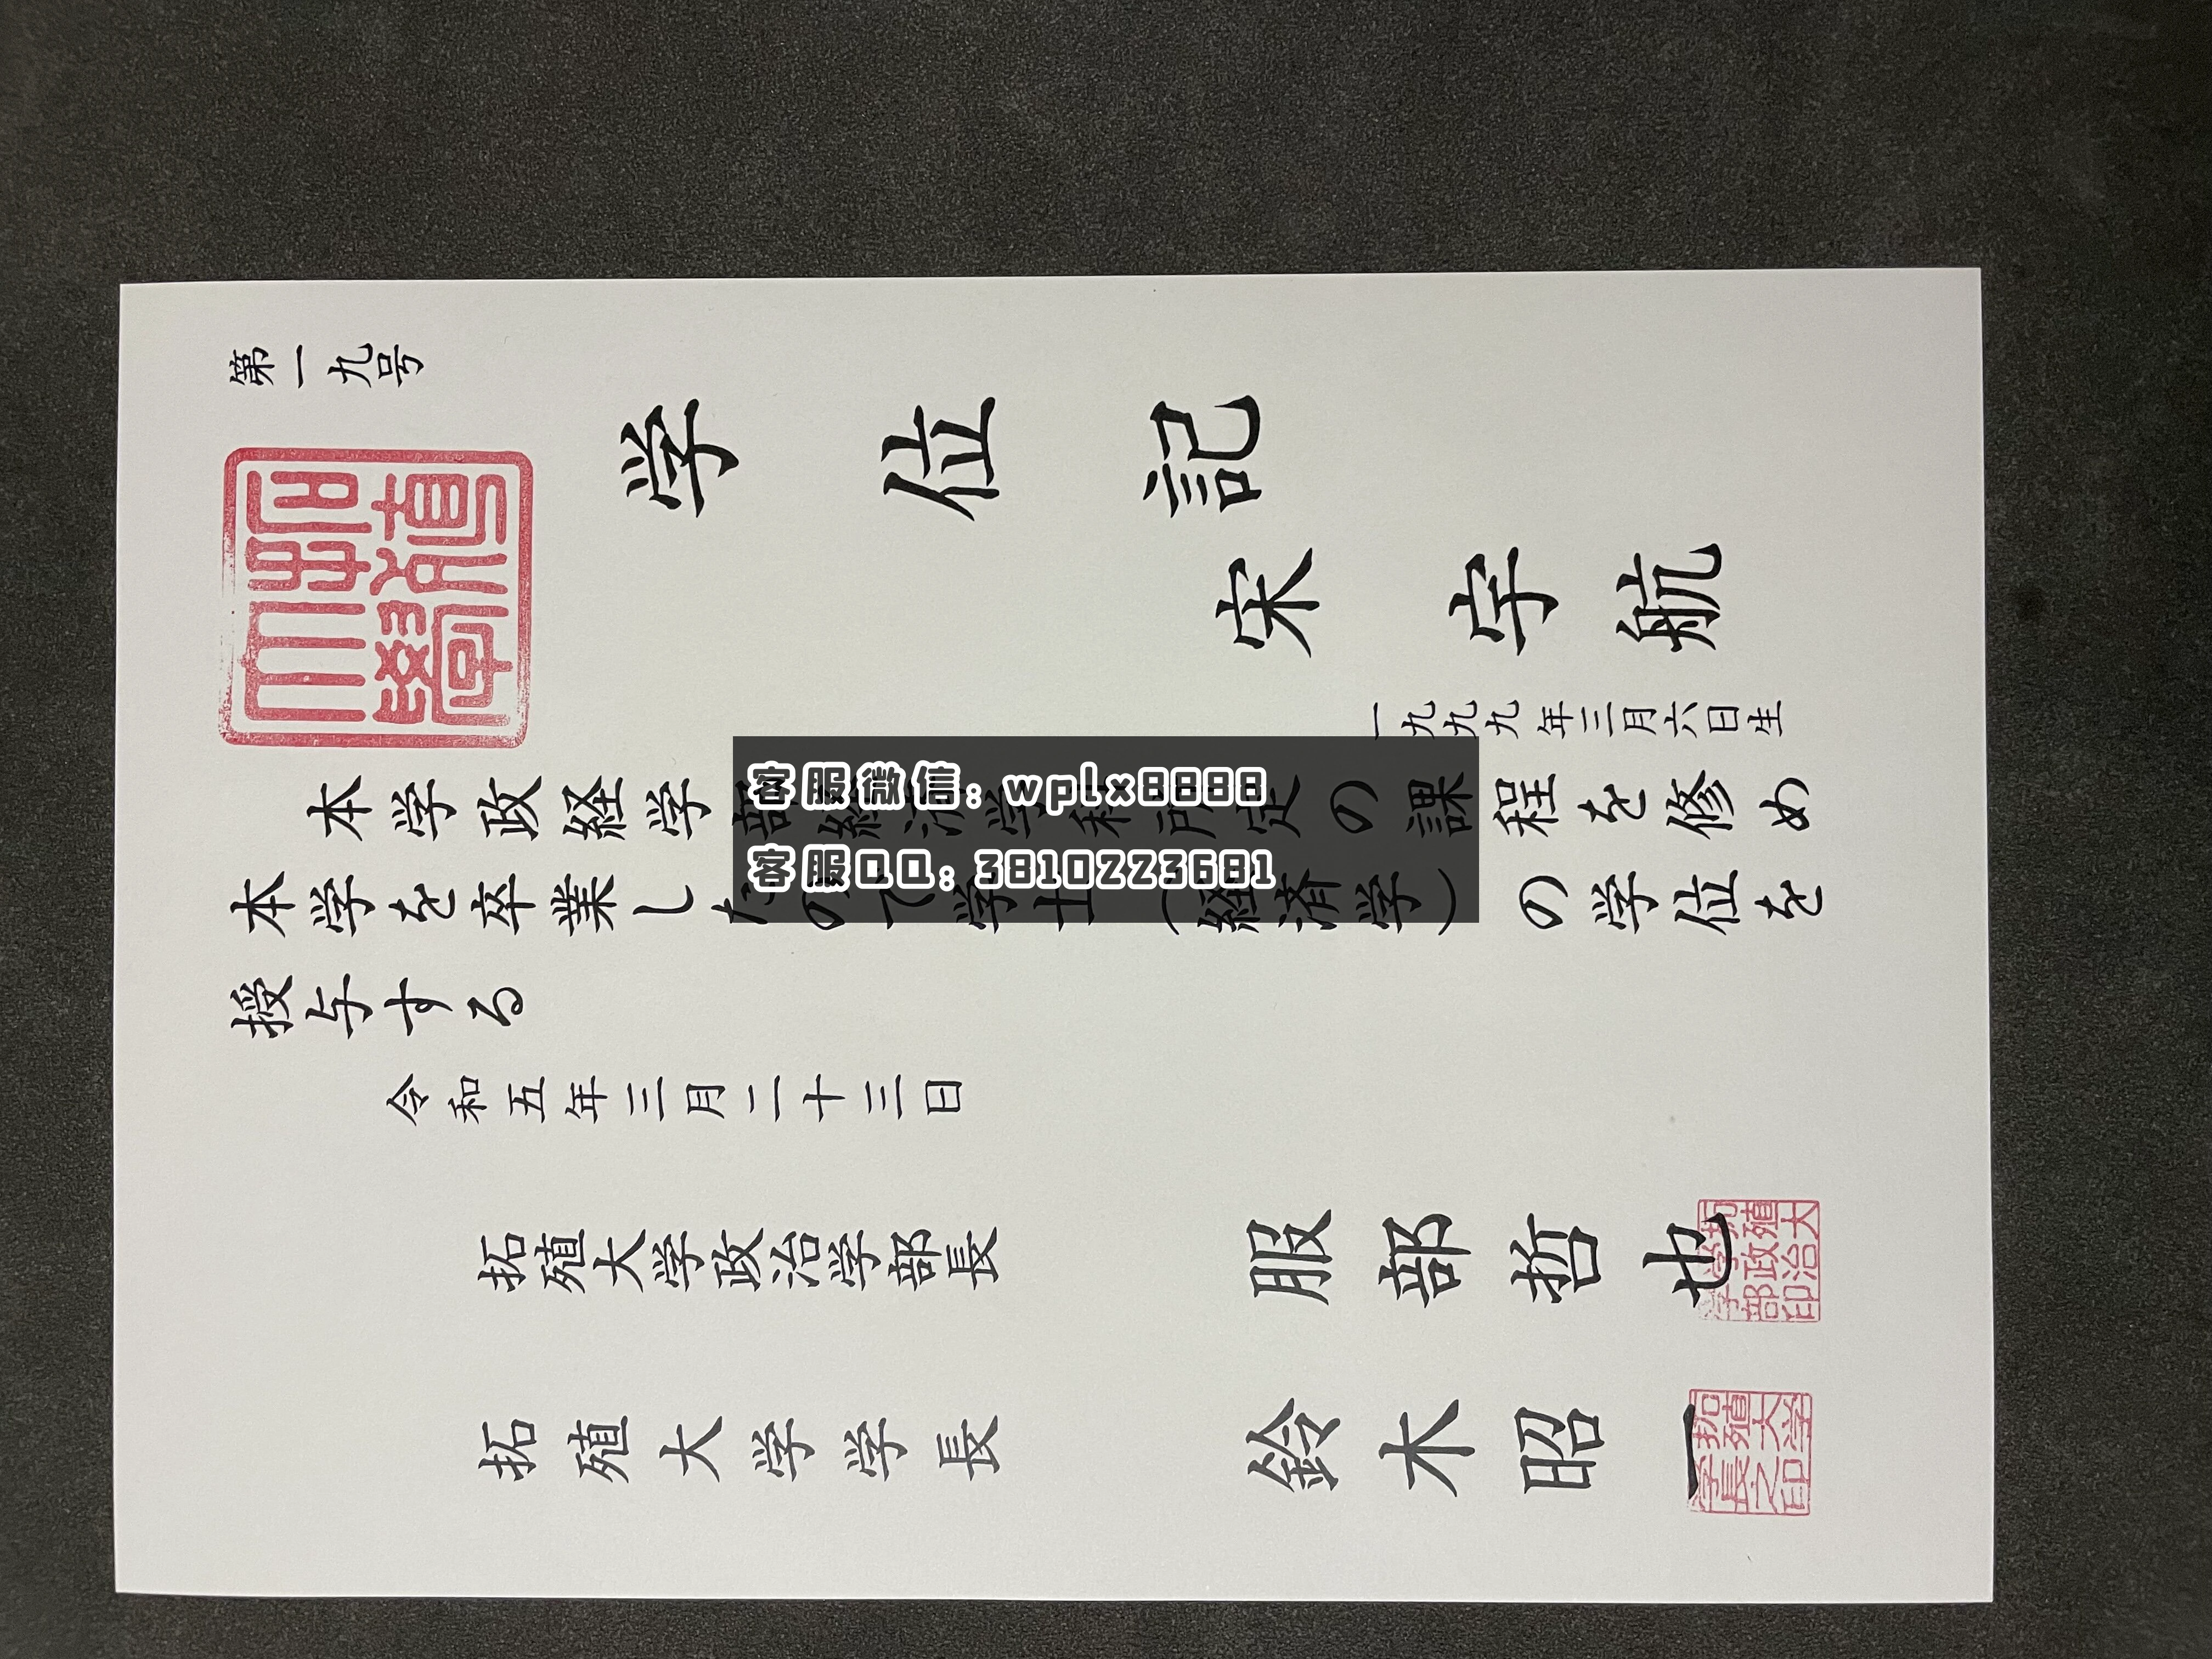 第一九号
拓殖大學
学位記
宋字航
一九九九年三月六日生
本学政経学部経済学科所定の課程を修め
本学を卒業したので学士（経済学）の学位を
授与する
令和五年三月二十三日
拓殖大学政治学部長 服部哲也
拓殖大学政治学部印
拓殖大学学長 鈴木昭一
拓殖大学学長之印
客服微信: wplx8888
客服QQ: 3810223681